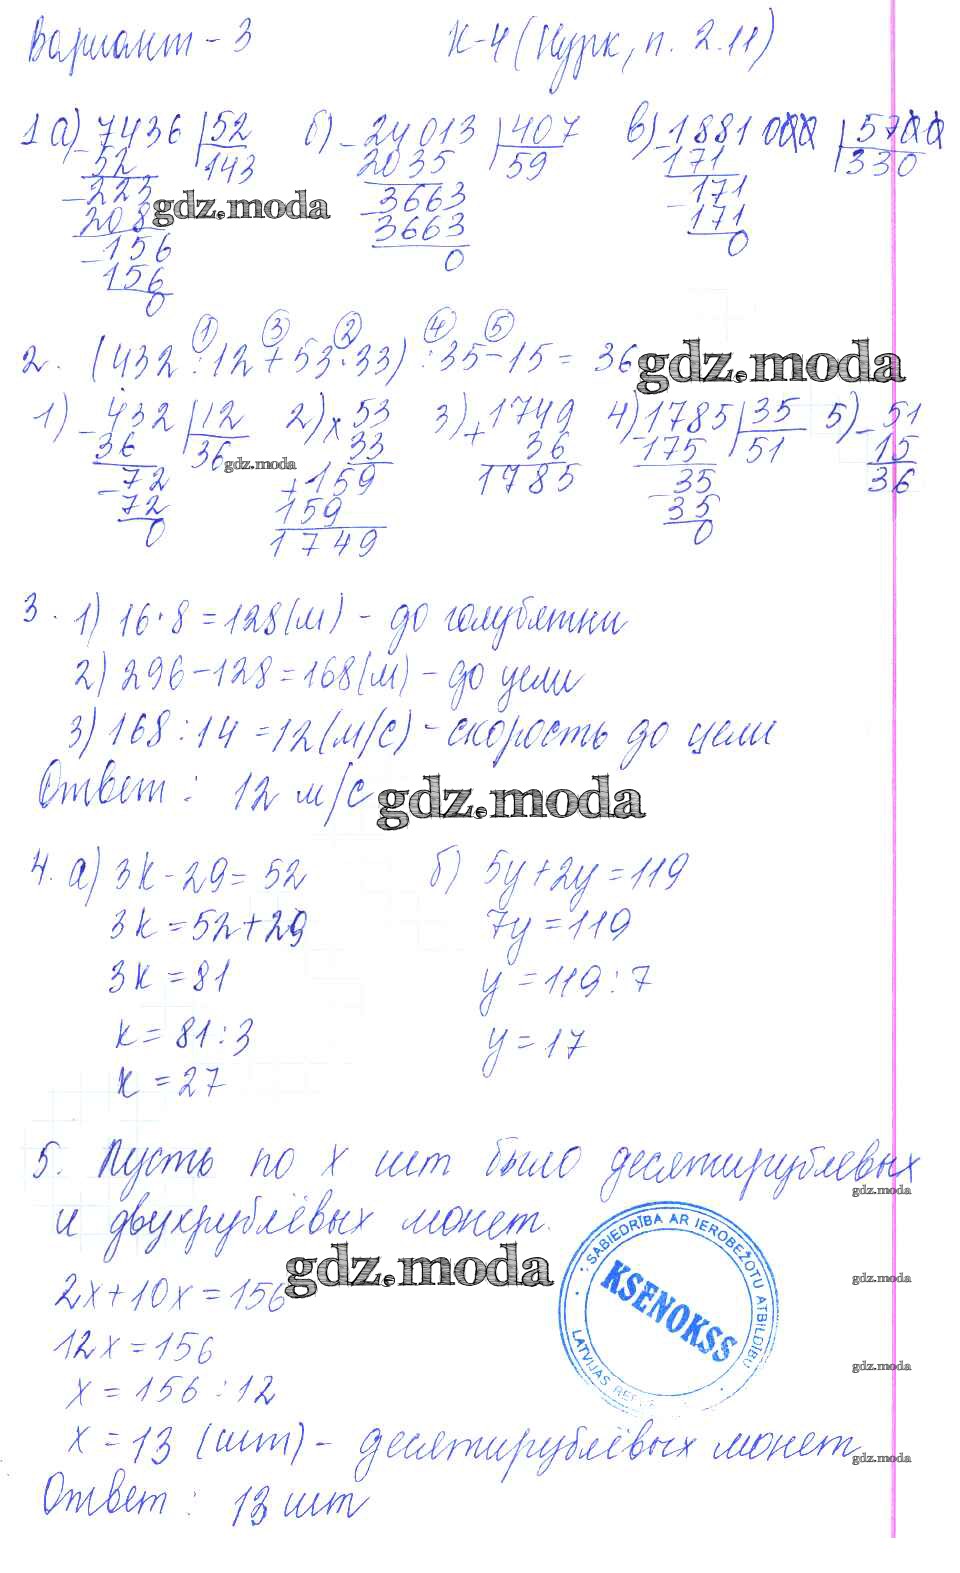 Вариант - 3    К-4 (Нурк, п. 2.11)
1 а) 7436 | 52    б) 24013 | 407    в) 1881000 | 5700
- 52    143    - 2035    59    - 171    330
- 223    - 3663    - 171
208    3663    171
- 156    0    0
156
0
gdz.moda
① ③ ② ④ ⑤
2. (432 : 12 + 53 · 33) : 35 - 15 = 36
gdz.moda
1) - 432 | 12    2) × 53    3) + 1749    4) - 1785 | 35    5) - 51
36    36    33    36    175    51    15
- 72    + 159    1785    - 35    36
72    159    35
0    1749    0
gdz.moda
3. 1) 16 · 8 = 128 (м) - до голубятни
2) 296 - 128 = 168 (м) - до цели
3) 168 : 14 = 12 (м/с) - скорость до цели
Ответ : 12 м/с
gdz.moda
4. а) 3k - 29 = 52    б) 5y + 2y = 119
3k = 52 + 29    7y = 119
3k = 81    y = 119 : 7
k = 81 : 3    y = 17
k = 27
5. Пусть по x шт было десятирублевых
gdz.moda
и двухрублёвых монет.
gdz.moda
2x + 10x = 156
12x = 156
x = 156 : 12
x = 13 (шт) - десятирублёвых монет
Ответ : 13 шт
SABIEDRĪBA AR IEROBEŽOTU ATBILDĪBU
KSENOKSS
LATVIJAS
gdz.moda
gdz.moda
gdz.moda